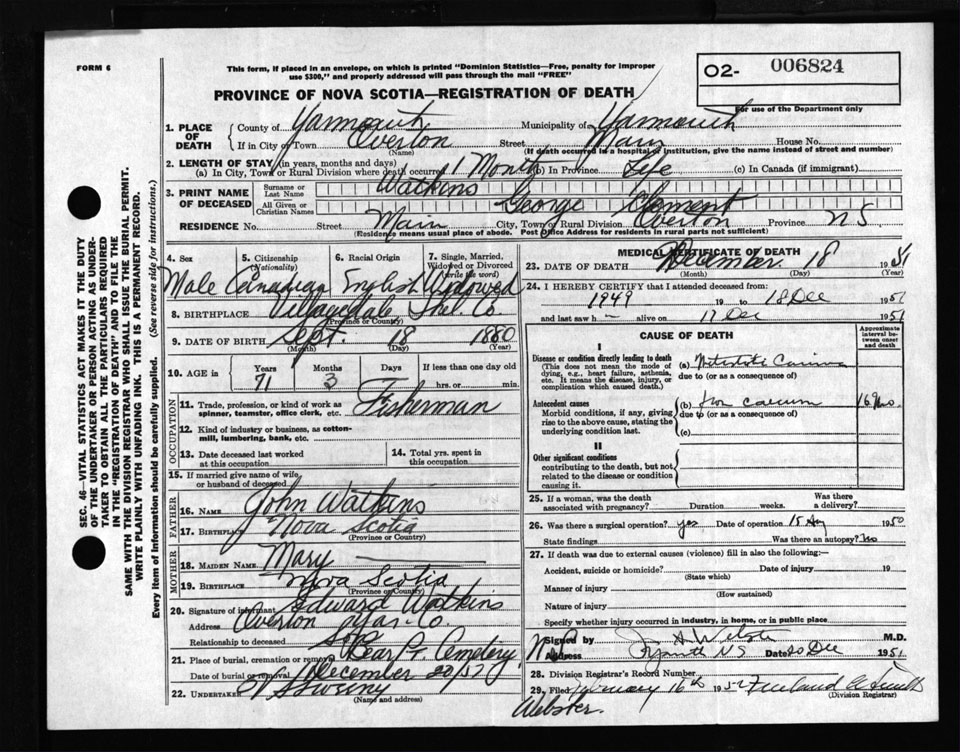 FORM 6
This form, if placed in an envelope, on which is printed "Dominion Statistics—Free, penalty for improper
use $300," and properly addressed will pass through the mail "FREE"
O2- 006824
For use of the Department only
PROVINCE OF NOVA SCOTIA—REGISTRATION OF DEATH
1. PLACE OF DEATH
County of Yarmouth Municipality of Yarmouth
If in City or Town Overton Street Main House No.
(Name) (If death occurred in a hospital or institution, give the name instead of street and number)
2. LENGTH OF STAY (in years, months and days)
(a) In City, Town or Rural Division where death occurred 11 Months (b) In Province Life (c) In Canada (if immigrant)
3. PRINT NAME OF DECEASED
Surname or Last Name Watkins
All Given or Christian Names George Clement
RESIDENCE No. Street Main City, Town or Rural Division Overton Province N S
(Residence means usual place of abode. Post Office Address for residents in rural parts not sufficient)
4. Sex Male
5. Citizenship (Nationality) Canadian
6. Racial Origin English
7. Single, Married, Widowed or Divorced (write the word) Widowed
8. BIRTHPLACE Villagedale Shel. Co
(Province or Country)
9. DATE OF BIRTH Sept. 18 1880
(Month) (Day) (Year)
10. AGE in Years 71 Months 3 Days If less than one day old
hrs. or min.
OCCUPATION
11. Trade, profession, or kind of work as
spinner, teamster, office clerk, etc. Fisherman
12. Kind of industry or business, as cotton-
mill, lumbering, bank, etc.
13. Date deceased last worked
at this occupation
14. Total yrs. spent in
this occupation
15. If married give name of wife,
or husband of deceased
FATHER
16. NAME John Watkins
17. BIRTHPLACE Nova Scotia
(Province or Country)
MOTHER
18. MAIDEN NAME Mary
19. BIRTHPLACE Nova Scotia
20. Signature of informant Edward Watkins
Address Overton Yar. Co.
Relationship to deceased son
21. Place of burial, cremation or removal Bear Pt. Cemetery
Date of burial or removal December 20/51
22. UNDERTAKER Sweeny
(Name and address)
MEDICAL CERTIFICATE OF DEATH
23. DATE OF DEATH December 18 1951
(Month) (Day)
24. I HEREBY CERTIFY that I attended deceased from:
1949 19 to 18 Dec 1951
and last saw h alive on 17 Dec 1951
CAUSE OF DEATH
Approximate interval between onset and death
I
Disease or condition directly leading to death
(This does not mean the mode of
dying, e.g., heart failure, asthenia,
etc. It means the disease, injury, or
complication which caused death.)
(a)
due to (or as a consequence of)
Antecedent causes
Morbid conditions, if any, giving
rise to the above cause, stating the
underlying condition last.
(b) from caecum 16 mos
due to (or as a consequence of)
(c)
II
Other significant conditions
contributing to the death, but not
related to the disease or condition
causing it.
25. If a woman, was the death
associated with pregnancy? Duration weeks. Was there
a delivery?
26. Was there a surgical operation? yes Date of operation 15 1950
State findings Was there an autopsy? no
27. If death was due to external causes (violence) fill in also the following:—
Accident, suicide or homicide? Date of injury 19
(State which)
Manner of injury
(How sustained)
Nature of injury
Specify whether injury occurred in industry, in home, or in public place
Signed by M.D.
Address Yarmouth NS Date 20 Dec 1951
28. Division Registrar's Record Number
29. Filed January 16th 1952
(Division Registrar)
Webster.
SEC. 46—VITAL STATISTICS ACT MAKES IT THE DUTY
OF THE UNDERTAKER OR PERSON ACTING AS UNDER-
TAKER TO OBTAIN ALL THE PARTICULARS REQUIRED
IN THE "REGISTRATION OF DEATH" AND TO FILE THE
SAME WITH THE DIVISION REGISTRAR WHO SHALL ISSUE THE BURIAL PERMIT.
WRITE PLAINLY WITH UNFADING INK. THIS IS A PERMANENT RECORD.
Every item of information should be carefully supplied. (See reverse side for instructions.)